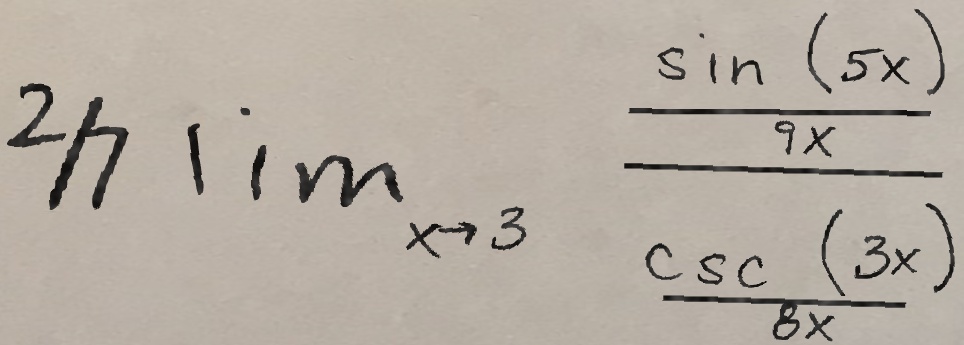 2/7 lim x→3 sin (5x)
9x
csc (3x)
8x